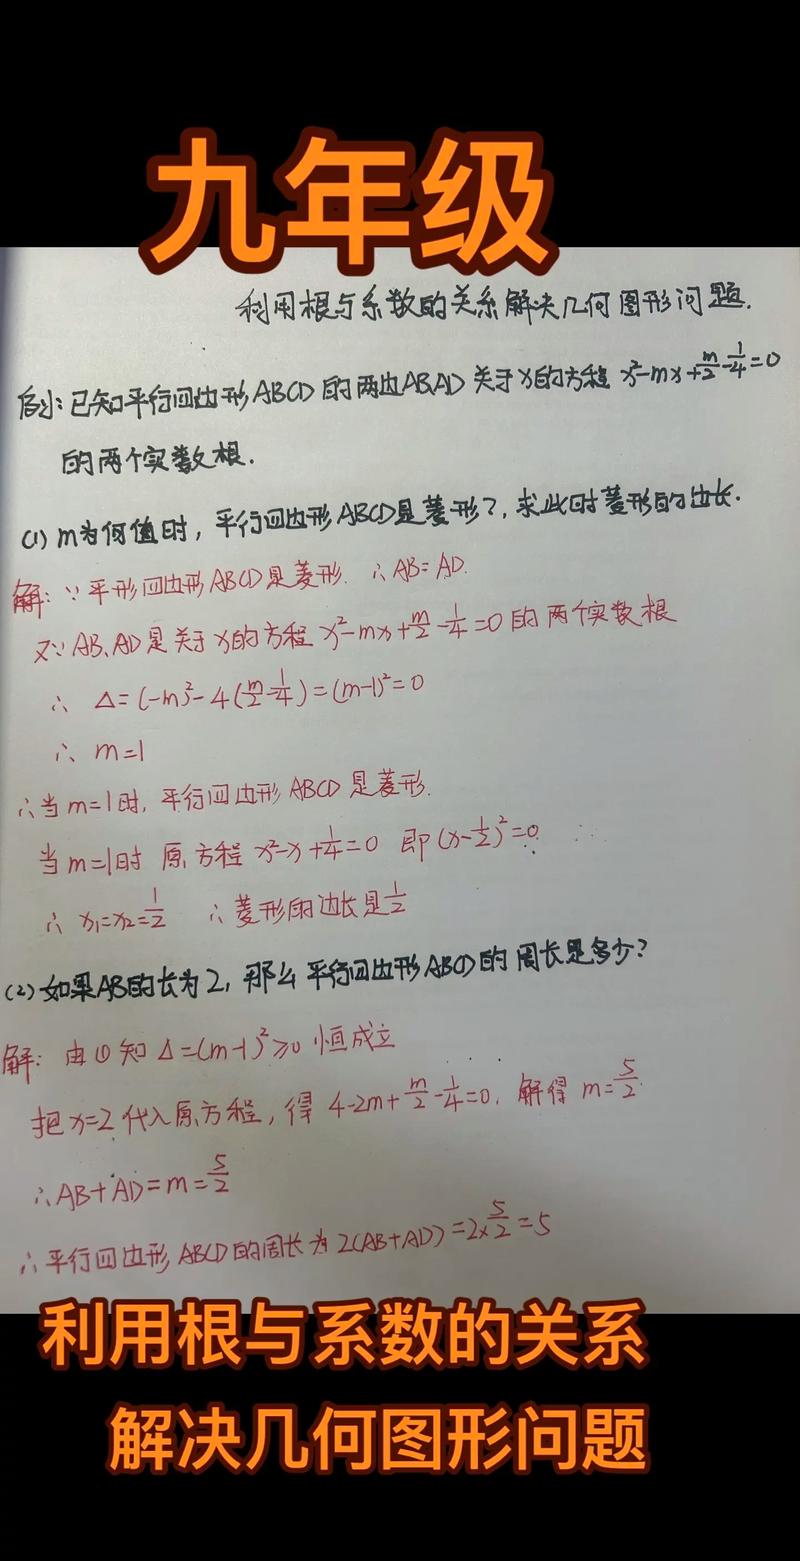 九年级
利用根与系数的关系解决几何图形问题.
例:已知平行四边形ABCD的两边AB,AD关于x的方程 x²-mx+m/2-1/4=0
的两个实数根.
(1) m为何值时,平行四边形ABCD是菱形?,求此时菱形的边长.
解:∵平形四边形ABCD是菱形.∴AB=AD.
又∵AB、AD是关于x的方程 x²-mx+m/2-1/4=0的两个实数根
∴ Δ=(-m)²-4(m/2-1/4)=(m-1)²=0
∴ m=1
∴当m=1时,平行四边形ABCD是菱形.
当m=1时 原方程 x²-x+1/4=0 即(x-1/2)²=0
∴ x₁=x₂=1/2 ∴菱形的边长是1/2
(2)如果AB的长为2,那么平行四边形ABCD的周长是多少?
解:由①知 Δ=(m-1)²≥0 恒成立
把x=2代入原方程,得 4-2m+m/2-1/4=0,解得 m=5/2.
∴AB+AD=m=5/2
∴平行四边形ABCD的周长为2(AB+AD)=2×5/2=5
利用根与系数的关系
解决几何图形问题